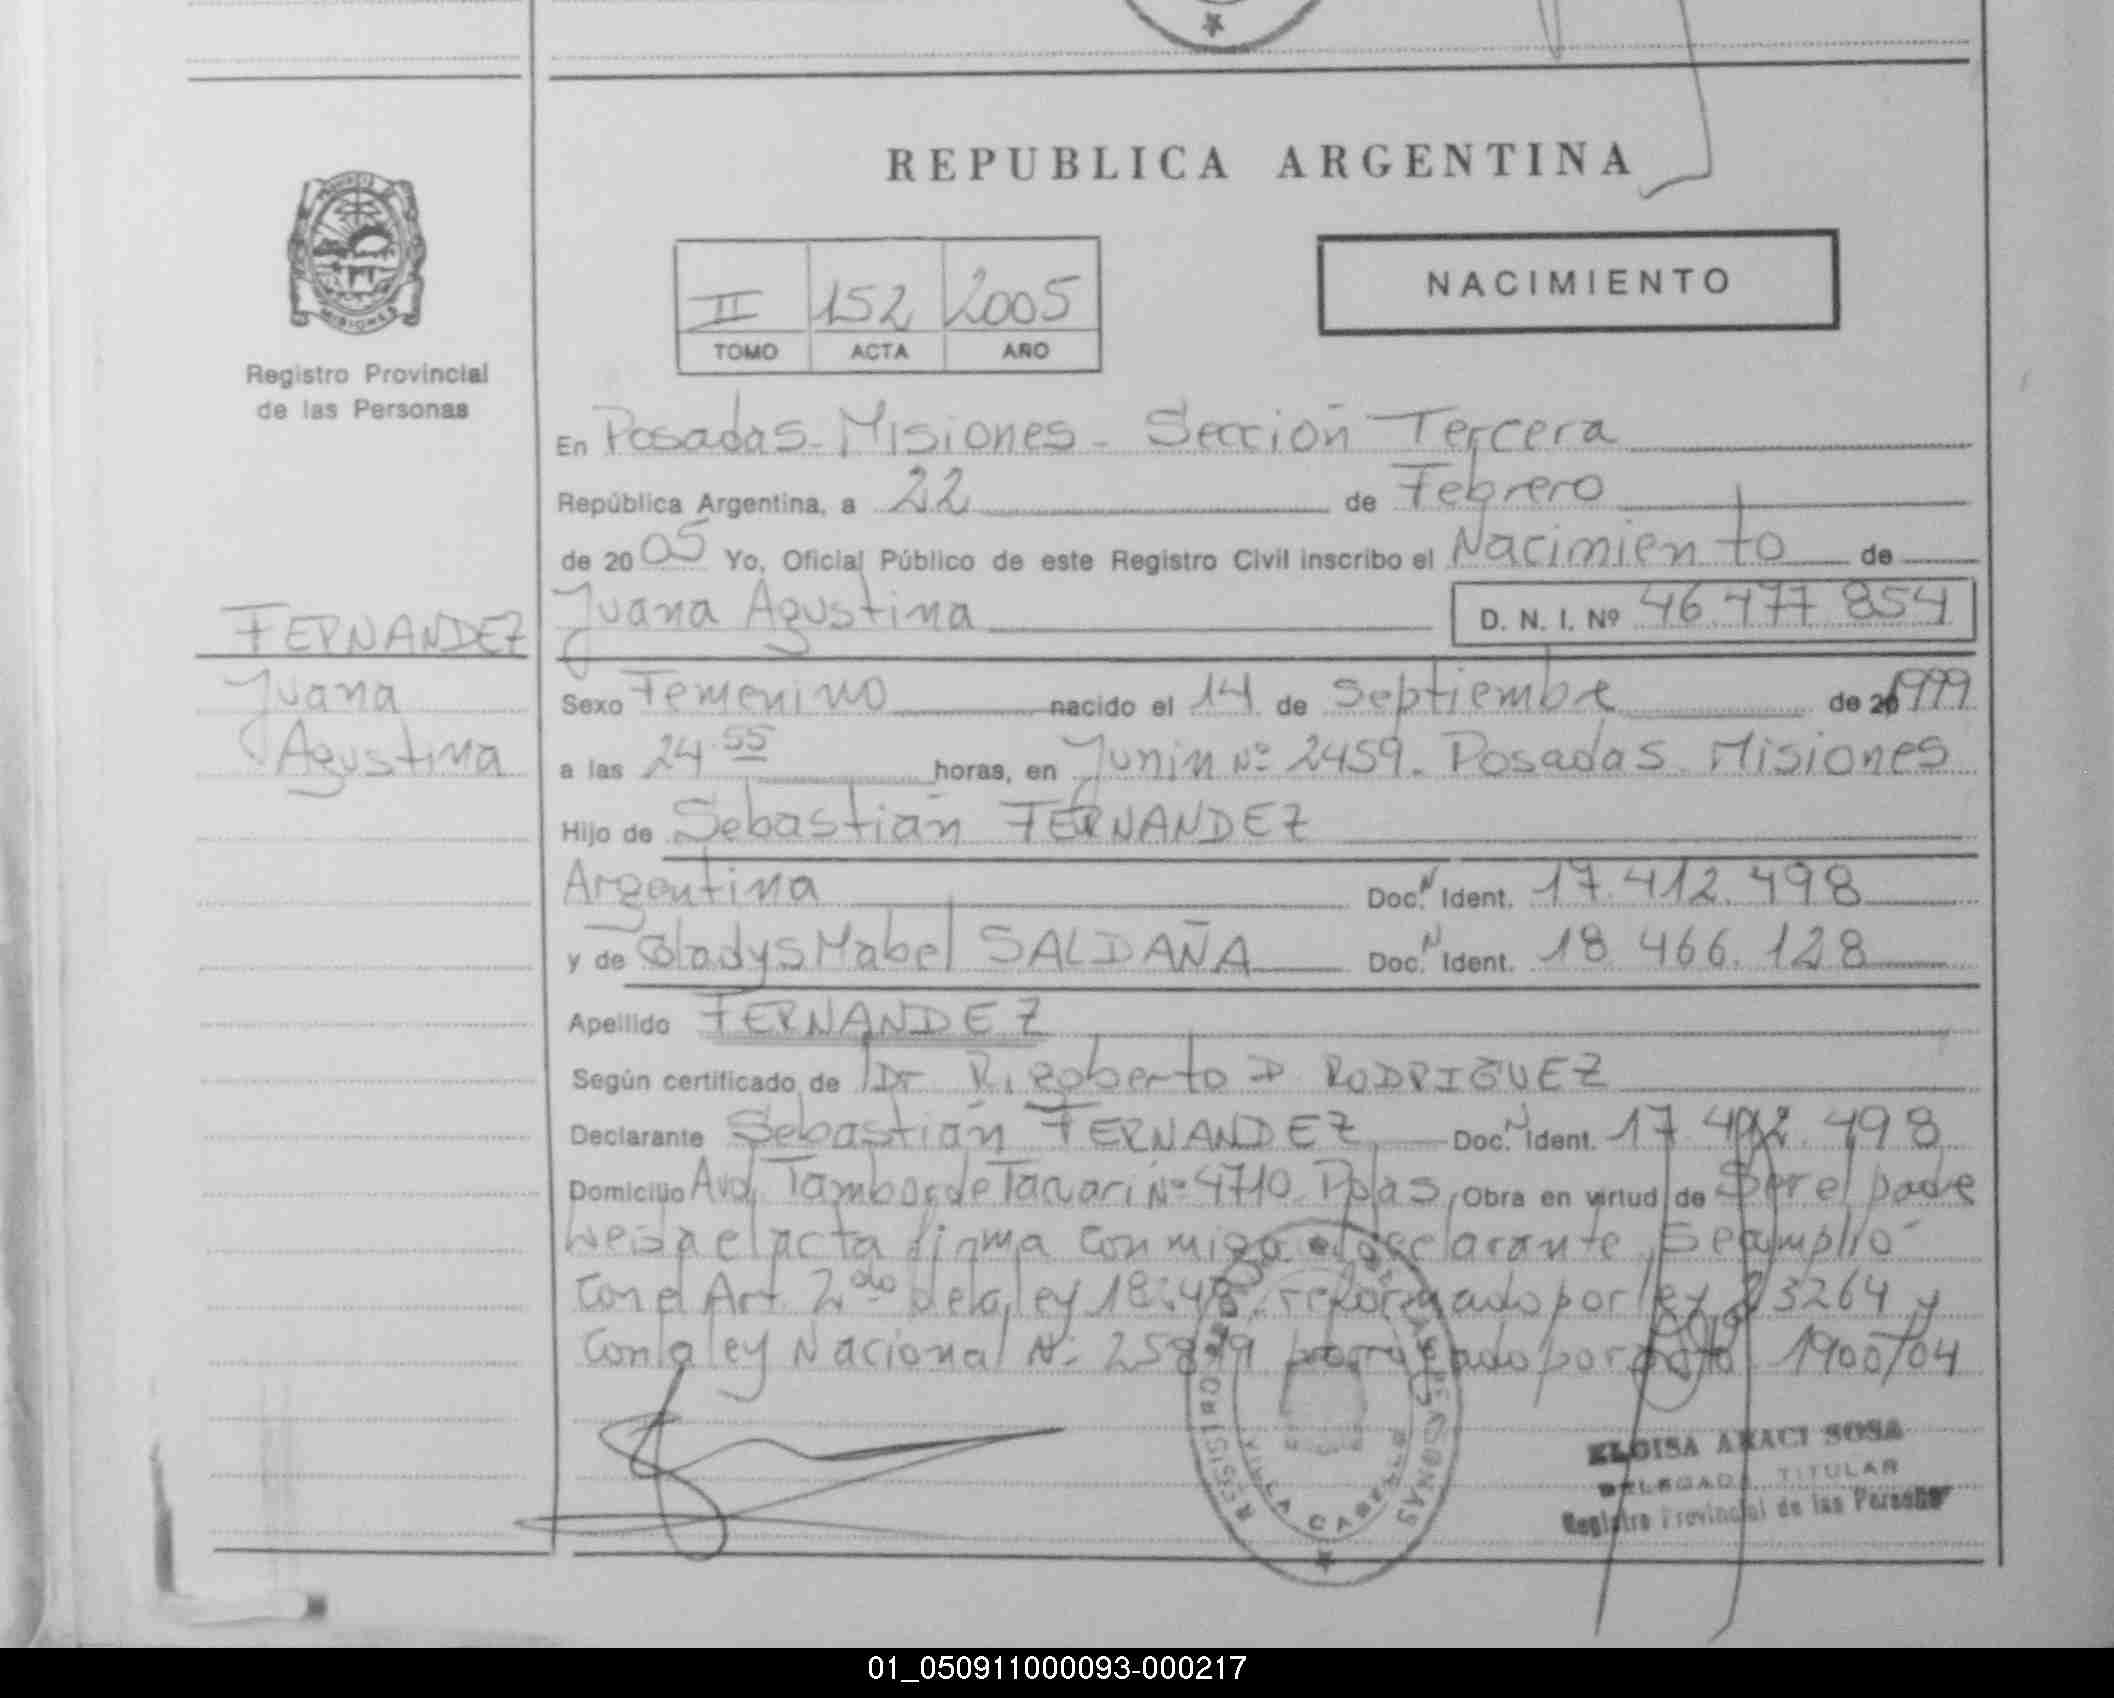 REPUBLICA ARGENTINA
MISIONES
Registro Provincial
de las Personas
II 152 2005
TOMO ACTA AÑO
NACIMIENTO
En Posadas - Misiones - Sección Tercera
República Argentina, a 22 de Febrero
de 2005 Yo, Oficial Público de este Registro Civil inscribo el Nacimiento de
FERNANDEZ
Juana
Agustina
Juana Agustina D. N. I. Nº 46.477 854
Sexo Femenino nacido el 14 de Septiembre de 20 1999
a las 24.55 horas, en Junin Nº 2459. Posadas. Misiones
Hijo de Sebastián FERNANDEZ
Argentina Doc. N Ident. 17.412.498
y de Gladys Mabel SALDAÑA Doc. N Ident. 18 466.128
Apellido FERNANDEZ
Según certificado de Dr Rigoberto D RODRIGUEZ
Declarante Sebastián FERNANDEZ Doc. N Ident. 17 412.498
Domicilio Avd. Tambor de Tacuari Nº 4710 Pdas, Obra en virtud de Ser el padre
Leida el acta firma conmigo el declarante, Se cumplió
Con el Art. 2do de la ley reformado por ley 23264 y
Con la ley Nacional Nº prorrogado por 1900/04
VILLA CABELLO
PERSONAS
ELOISA ARACI SOSA
DELEGADA TITULAR
Registro Provincial de las Personas
01_050911000093-000217